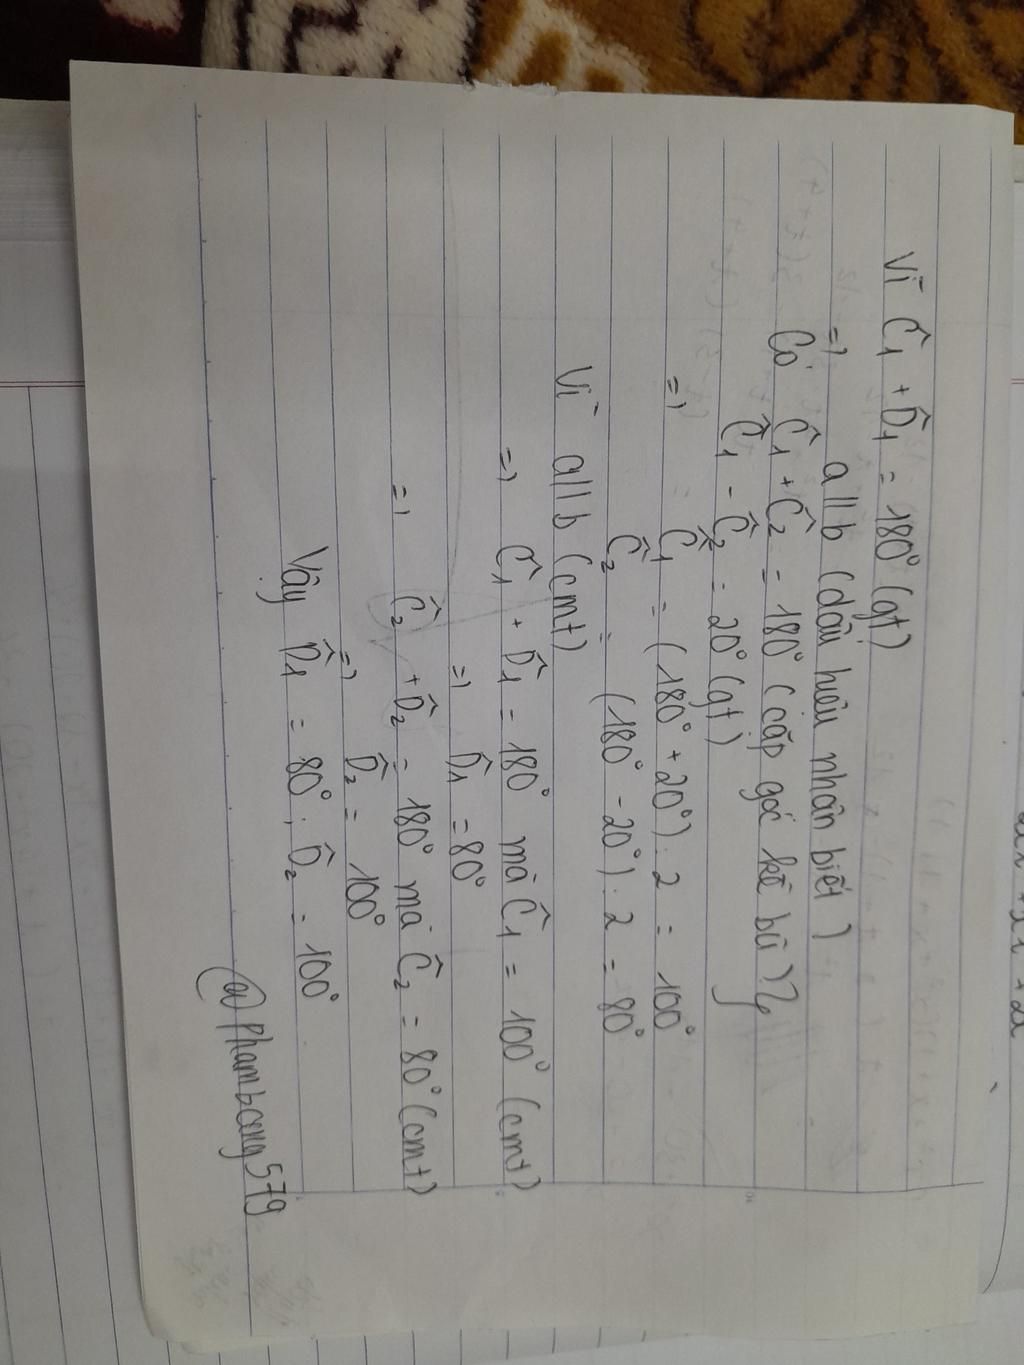 Vì Ĉ1 + D̂1 = 180° (gt)
=> a // b (dấu hiệu nhận biết)
Có Ĉ1 + Ĉ2 = 180° (cặp góc kề bù)
Ĉ1 - Ĉ2 = 20° (gt)
=> Ĉ1 = (180° + 20°) : 2 = 100°
Ĉ2 = (180° - 20°) : 2 = 80°
Vì a // b (cmt)
=> Ĉ1 + D̂1 = 180° mà Ĉ1 = 100° (cmt)
=> D̂1 = 80°
=> Ĉ2 + D̂2 = 180° mà Ĉ2 = 80° (cmt)
=> D̂2 = 100°
Vậy D̂1 = 80° ; D̂2 = 100°
@phambcang579